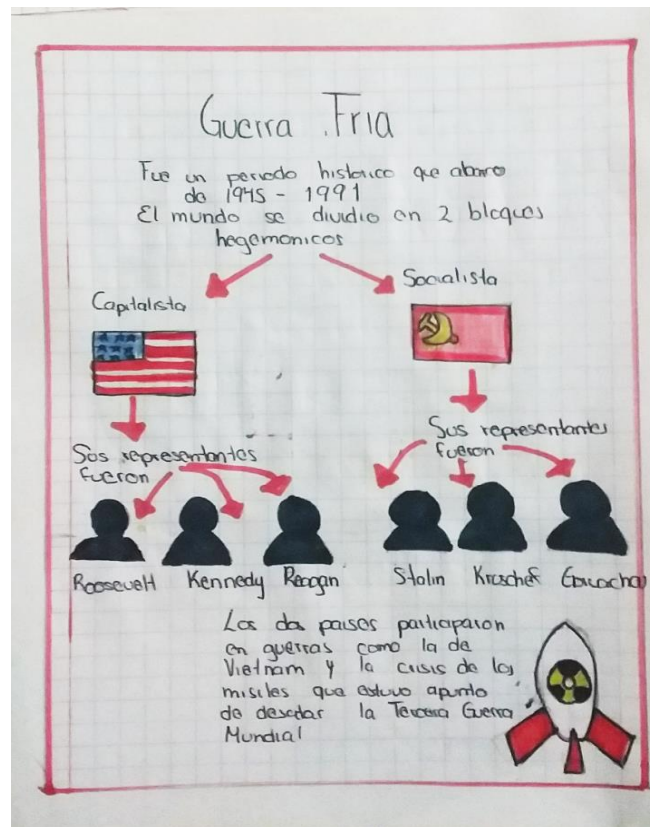 Guerra Fria
Fue un periodo historico que abarco
de 1945 - 1991
El mundo se dividio en 2 bloques
hegemonicos
Capitalista
Socialista
Sus representantes
fueron
Sus representantes
fueron
Roosevelt Kennedy Reagan
Stalin Kruschef
Los dos paises participaron
en guerras como la de
Vietnam y la crisis de los
misiles que estuvo apunto
de desatar la Tercera Guerra
Mundial